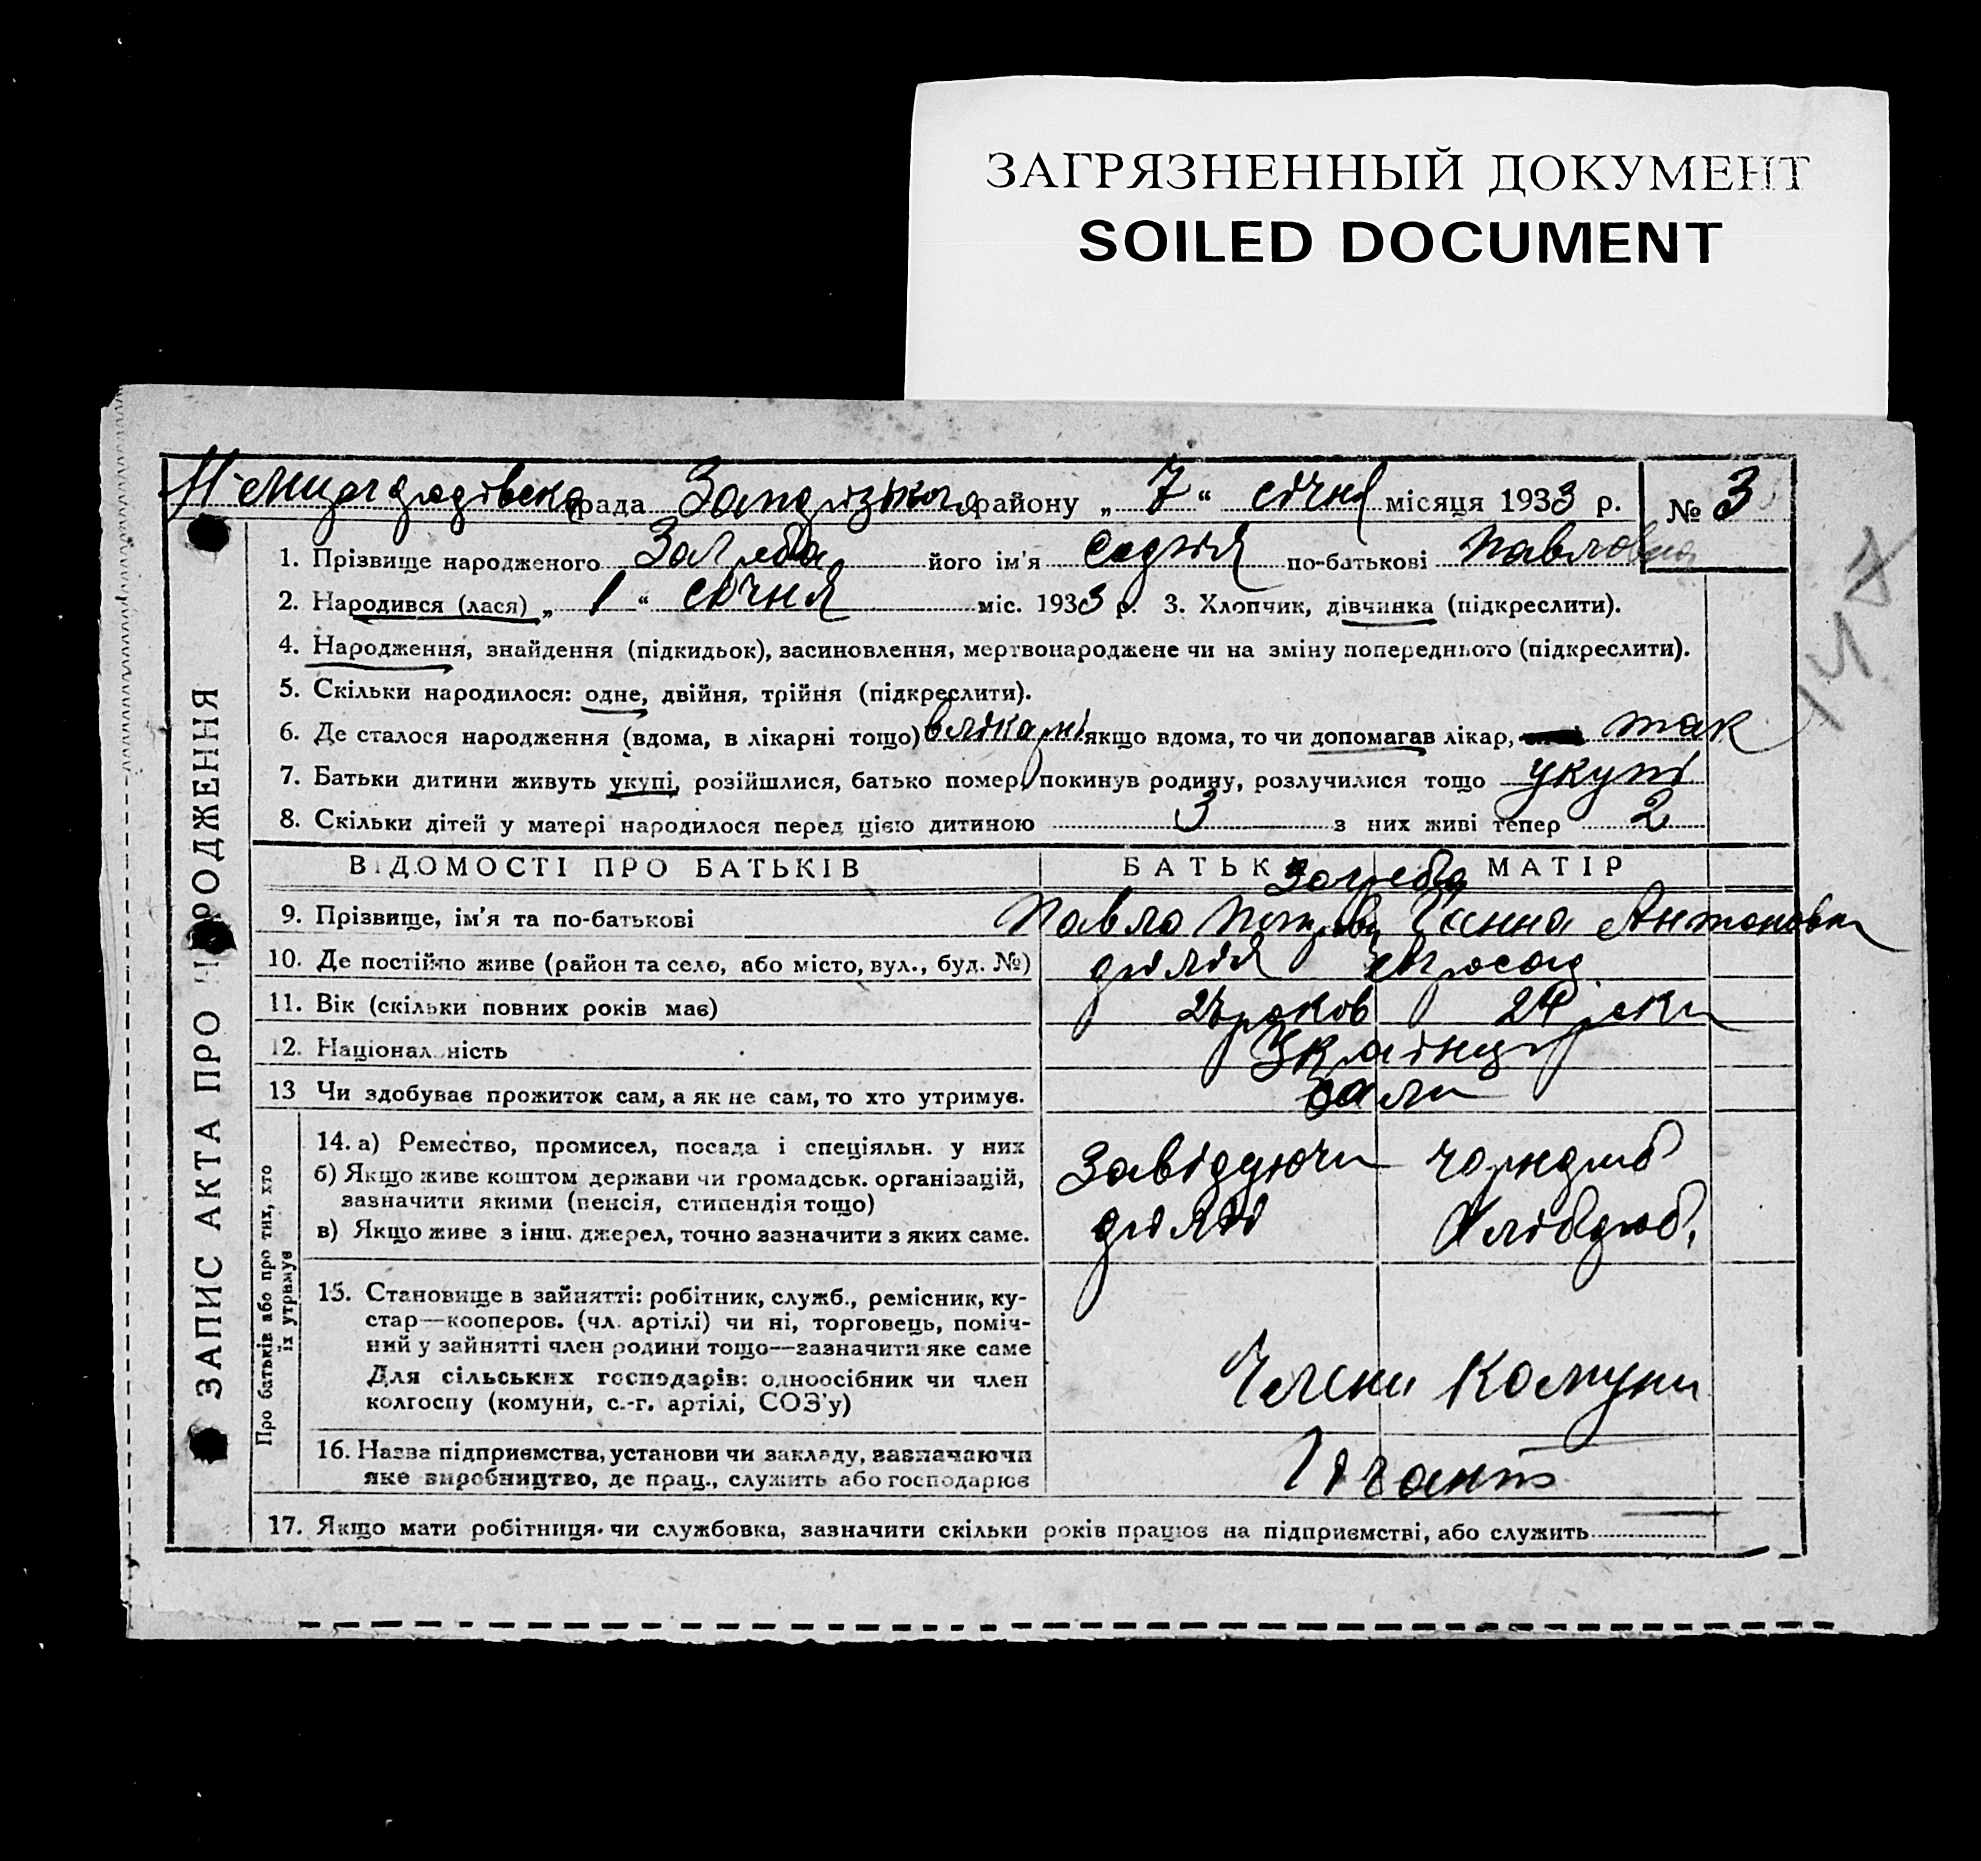 ЗАГРЯЗНЕННЫЙ ДОКУМЕНТ
SOILED DOCUMENT
рада району „ 7 “ січня місяця 1933 р. № 3
1. Прізвище народженого Загреба його ім'я по-батькові Павловна
2. Народився (лася) „ 1 “ січня міс. 1933 р. 3. Хлопчик, дівчинка (підкреслити).
4. Народження, знайдення (підкидьок), засиновлення, мертвонароджене чи на зміну попереднього (підкреслити).
5. Скільки народилося: одне, двійня, трійня (підкреслити).
6. Де сталося народження (вдома, в лікарні тощо) в лікарні якщо вдома, то чи допомагав лікар, так
7. Батьки дитини живуть укупі, розійшлися, батько помер, покинув родину, розлучилися тощо укупі
8. Скільки дітей у матері народилося перед цією дитиною 3 з них живі тепер 2
ВІДОМОСТІ ПРО БАТЬКІВ БАТЬКО МАТІР
Загреба
9. Прізвище, ім'я та по-батькові Павло Ганна Антоновна
10. Де постійно живе (район та село, або місто, вул., буд. №)
11. Вік (скільки повних років має) років 24 роки
12. Національність Українці
13 Чи здобуває прожиток сам, а як не сам, то хто утримує. сами
14. а) Ремество, промисел, посада і спеціяльн. у них Завідуючи чорнороб
б) Якщо живе коштом держави чи громадськ. організацій,
зазначити якими (пенсія, стипендія тощо)
в) Якщо живе з інш. джерел, точно зазначити з яких саме. Хлібороб.
15. Становище в зайнятті: робітник, служб., ремісник, ку-
стар—кооперов. (чл. артілі) чи ні, торговець, поміч-
ний у зайнятті член родини тощо—зазначити яке саме
Для сільських господарів: одноосібник чи член
колгоспу (комуни, с.-г. артілі, СОЗ'у)
Члени Комуни
16. Назва підприємства, установи чи закладу, зазначаючи
яке виробництво, де прац., служить або господарює
Гігант
17. Якщо мати робітниця чи службовка, зазначити скільки років працює на підприємстві, або служить
ЗАПИС АКТА ПРО НАРОДЖЕННЯ
Про батьків або про тих, хто
їх утримує